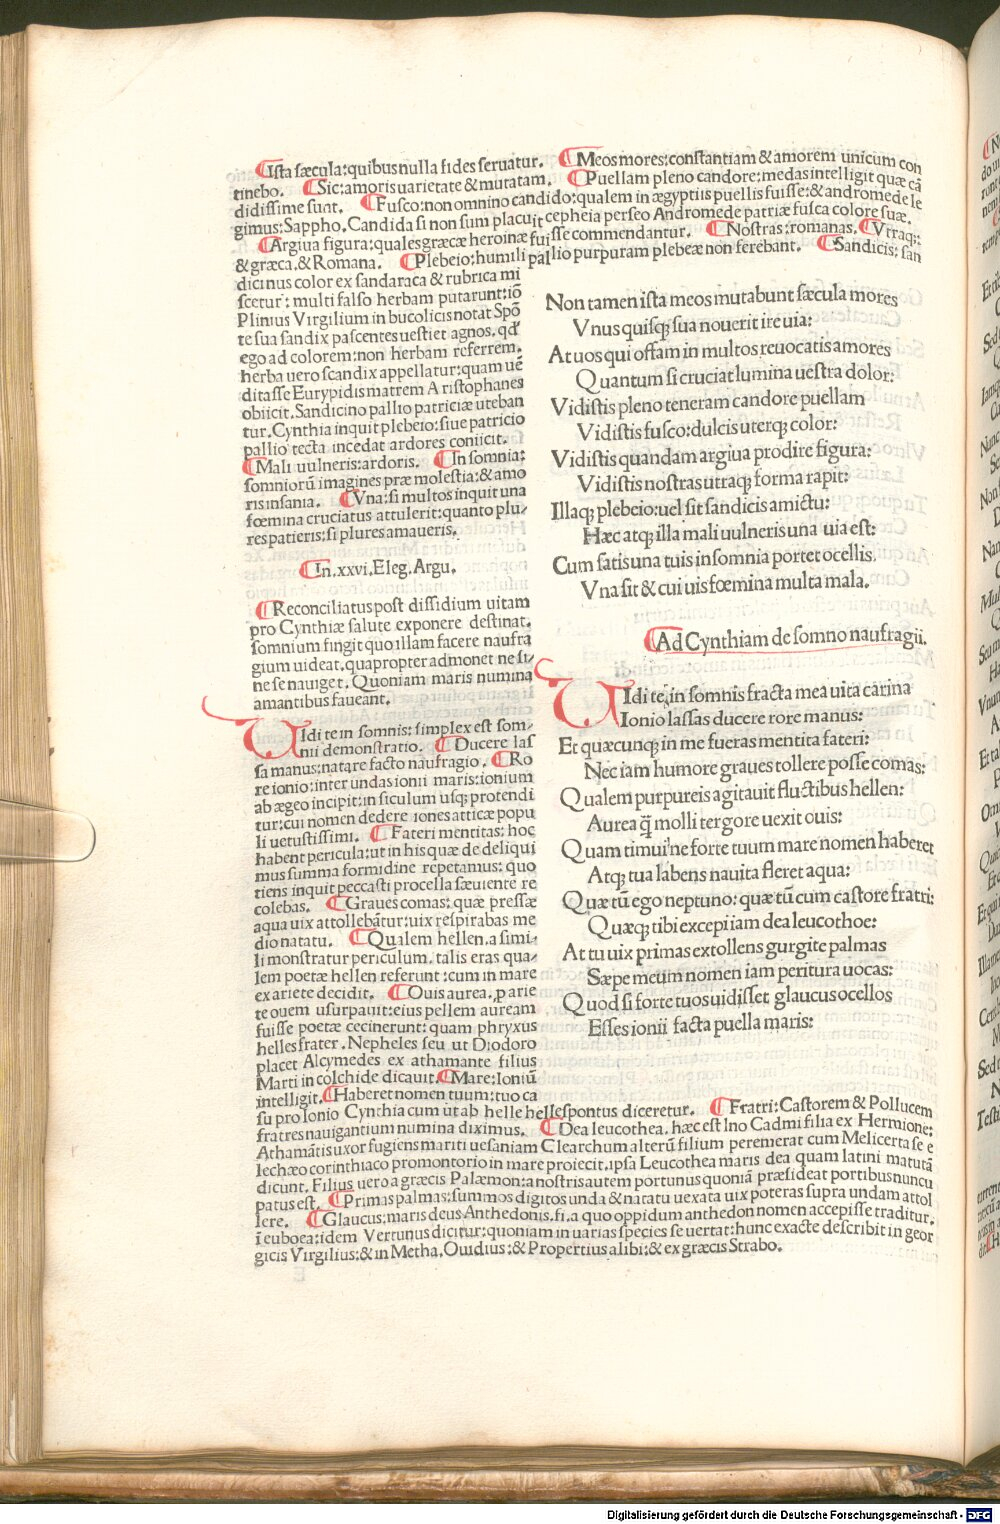 ¶Ista sæcula: quibus nulla fides seruatur. ¶Meos mores: constantiam & amorem unicum con
tinebo. ¶Sic: amoris uarietate & mutatam. ¶Puellam pleno candore: medas intelligit quæ cã
didissime sunt. ¶Fusco: non omnino candido: qualem in ægyptiis puellis fuisse: & andromede le
gimus: Sappho. Candida si non sum placuit cepheia perseo Andromede patriæ fusca colore suæ.
¶Argiua figura: quales græcæ heroinæ fuisse commendantur. ¶Nostras: romanas. ¶Vtraq;:
& græca. & Romana. ¶Plebeio: humili pallio purpuram plebeæ non ferebant. ¶Sandicis: san
dicinus color ex sandaraca & rubrica mi
scetur: multi falso herbam putarunt: iõ
Plinius Virgilium in bucolicis notat Spõ
te sua sandix pascentes uestiet agnos. qđ
ego ad colorem: non herbam referrem.
herba uero scandix appellatur: quam uẽ
ditasse Eurypidis matrem Aristophanes
obiicit. Sandicino pallio patriciæ uteban
tur. Cynthia inquit plebeio: siue patricio
pallio tecta incedat ardores coniicit.
¶Mali uulneris: ardoris. ¶In somnia:
somniorũ imagines præ molestia: & amo
ris insania. ¶Vna: si multos inquit una
fœmina cruciatus attulerit: quanto plu-
res patieris: si plures amaueris.
¶In.xxvi. Eleg. Argu.
¶Reconciliatus post dissidium uitam
pro Cynthiæ salute exponere destinat.
somnium fingit quo illam facere naufra
gium uideat. quapropter admonet ne si-
ne se nauiget. Quoniam maris numina
amantibus faueant.
VIdi te in somnis: simplex est som-
nii demonstratio. ¶Ducere las
sa manus: natare facto naufragio. ¶Ro
re ionio: inter undas ionii maris: ionium
ab ægeo incipit: in siculum usq; protendi
tur: cui nomen dedere iones atticæ popu
li uetustissimi. ¶Fateri mentitas: hoc
habent pericula: ut in his quæ de deliqui
mus summa formidine repetamus: quo
tiens inquit peccasti procella sæuiente re
colebas. ¶Graues comas: quæ pressæ
aqua uix attollebãtur: uix respirabas me
dio natatu. ¶Qualem hellen. a simi-
li monstratur periculum. talis eras qua-
lem poetæ hellen referunt: cum in mare
ex ariete decidit. ¶Ouis aurea. ꝓ arie
te ouem usurpauit: eius pellem auream
fuisse poetæ cecinerunt: quam phryxus
helles frater. Nepheles seu ut Diodoro
placet Alcymedes ex athamante filius
Marti in colchide dicauit. ¶Mare: Ioniũ
intelligit. ¶Haberet nomen tuum: tuo ca
su pro Ionio Cynthia cum ut ab helle hellespontus diceretur. ¶Fratri: Castorem & Pollucem
fratres nauigantium numina diximus. ¶Dea leucothea. hæc est Ino Cadmi filia ex Hermione:
Athamãtis uxor fugiens mariti uesaniam Clearchum alterũ filium peremerat cum Melicerta se e
lechæo corinthiaco promontorio in mare proiecit. ipsa Leucothea maris dea quam latini matutã
dicunt. Filius uero a græcis Palæmon: a nostris autem portunus quoniã præsideat portibus nuncu
patus est. ¶Primas palmas: summos digitos unda & natatu uexata uix poteras supra undam attol
lere. ¶Glaucus: maris deus Anthedonis. fi. a quo oppidum anthedon nomen accepisse traditur.
ĩ euboea: idem Vertunus dicitur: quoniam in uarias species se uertat: hunc exacte describit in geor
gicis Virgilius: & in Metha. Ouidius: & Propertius alibi: & ex græcis Strabo.
Non tamen ista meos mutabunt sæcula mores
Vnus quisq; sua nouerit ire uia:
At uos qui offam in multos reuocatis amores
Quantum si cruciat lumina uestra dolor:
Vidistis pleno teneram candore puellam
Vidistis fusco: dulcis uterq; color:
Vidistis quandam argiua prodire figura:
Vidistis nostras utraq; forma rapit:
Illaq; plebeio: uel sit sandicis amictu:
Hæc atq; illa mali uulneris una uia est:
Cum satis una tuis insomnia portet ocellis.
Vna sit & cui uis fœmina multa mala.
¶Ad Cynthiam de somno naufragii.
VIdi te in somnis fracta mea uita carina
Ionio lassas ducere rore manus:
Et quæcunq; in me fueras mentita fateri:
Nec iam humore graues tollere posse comas:
Qualem purpureis agitauit fluctibus hellen:
Aurea q̃ molli tergore uexit ouis:
Quam timui: ne forte tuum mare nomen haberet
Atq; tua labens nauita fleret aqua:
Quæ tũ ego neptuno: quæ tũ cum castore fratri:
Quæq; tibi excepi iam dea leucothoe:
At tu uix primas extollens gurgite palmas
Sæpe meum nomen iam peritura uocas:
Quod si forte tuos uidisset glaucus ocellos
Esses ionii facta puella maris:
Digitalisierung gefördert durch die Deutsche Forschungsgemeinschaft - DFG